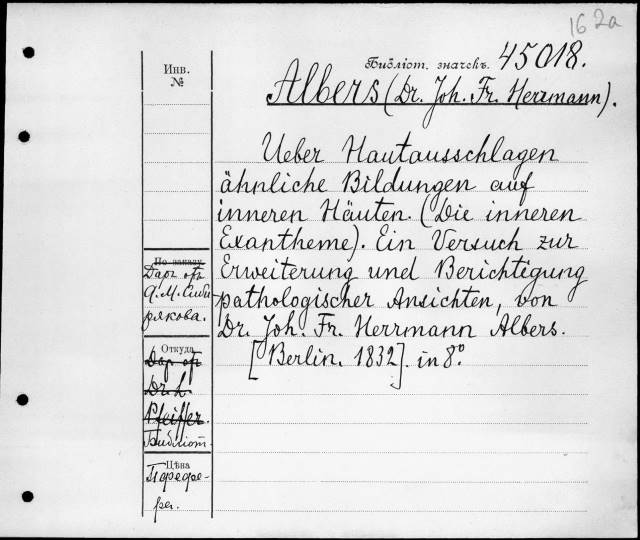 16 2a
Библіот. значекъ. 45018.
Albers (Dr. Joh. Fr. Herrmann).
Ueber Hautausschlagen
ähnliche Bildungen auf
inneren Häuten. (Die inneren
Exantheme). Ein Versuch zur
Erweiterung und Berichtigung
pathologischer Ansichten, von
Dr. Joh. Fr. Herrmann Albers.
[Berlin. 1832]. in 8°
Инв.
№
По заказу
Даръ отъ
А. М. Сиби
рякова.
Откуда
Даръ отъ
Dr. L.
Pfeiffer.
Библіот.
Цѣна